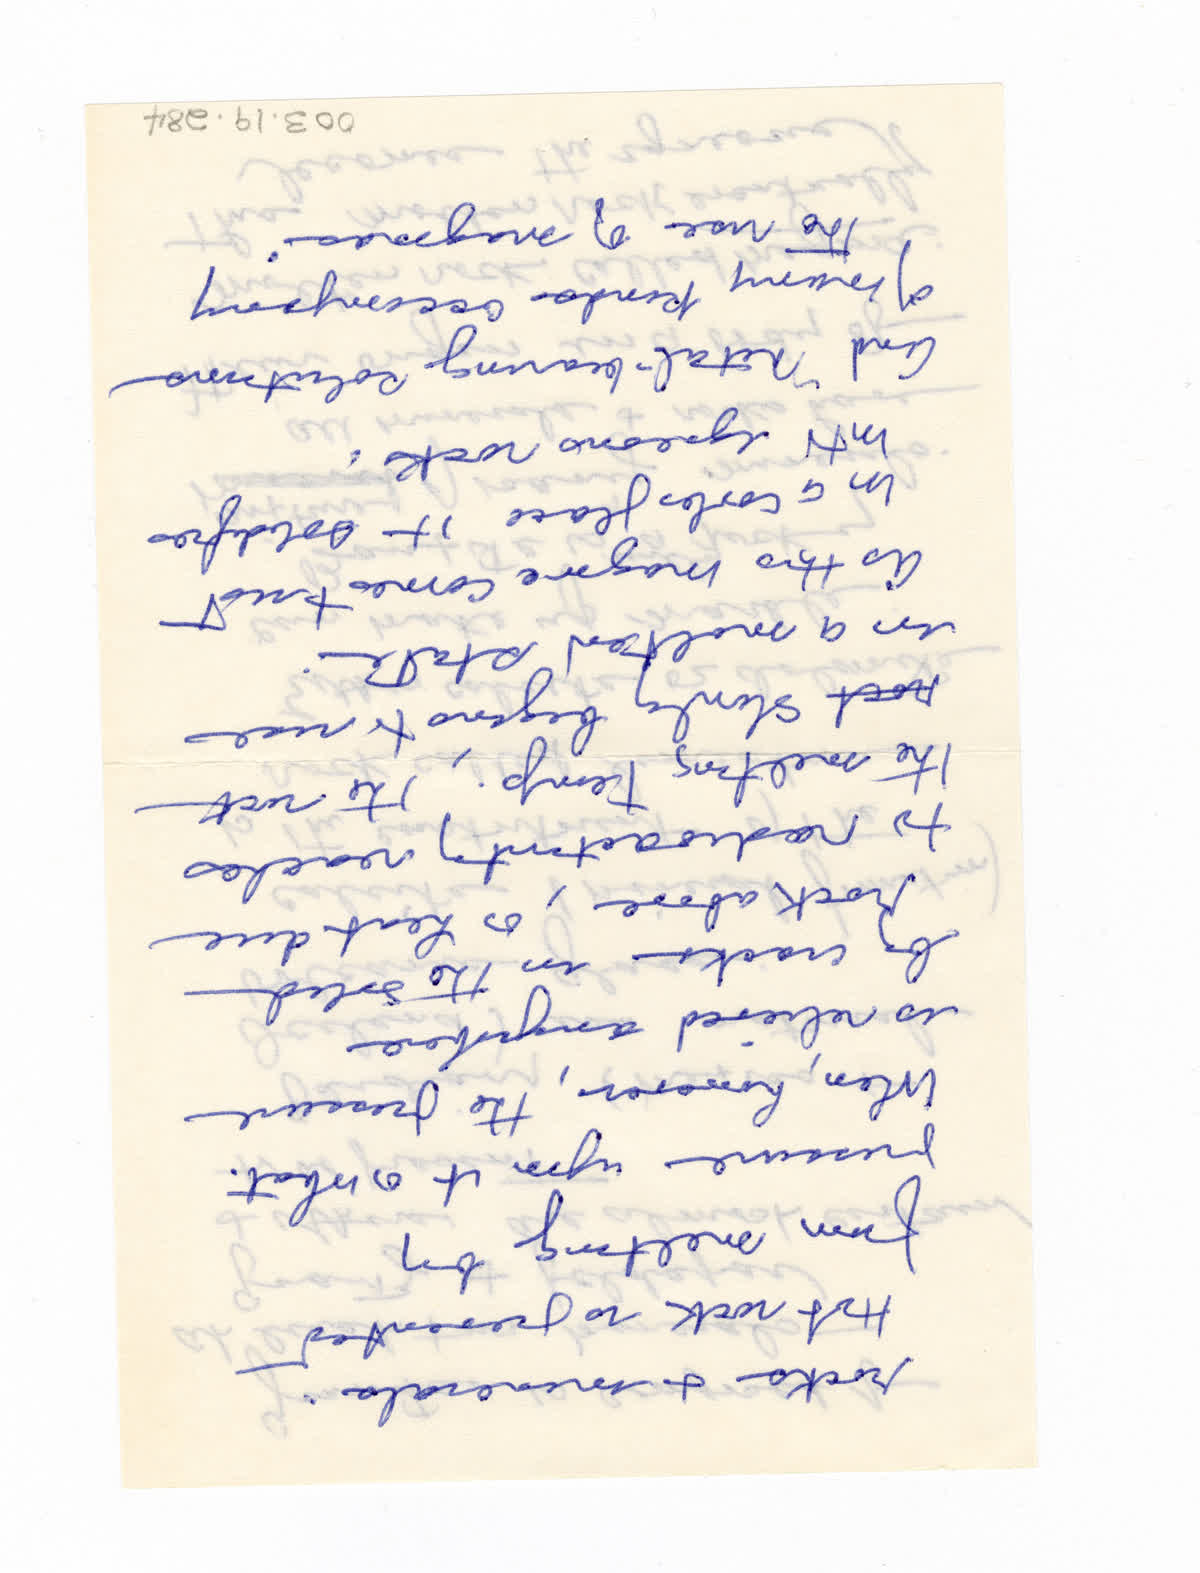 rocks & minerals:
Hot rock is prevented
from melting by
pressure upon it as what.
When, however, the pressure
is relieved anywhere
by cracks in the solid
rock above, or heat due
to radioactivity reaches
the melting temp., the rock
rock slowly begins to rise
in a melted state.
As this magma comes to rest
in a cooler place it solidifies
into igneous rock;
And "metal-bearing solutions
of many kinds accompany
the rise of magmas.
003.19.284